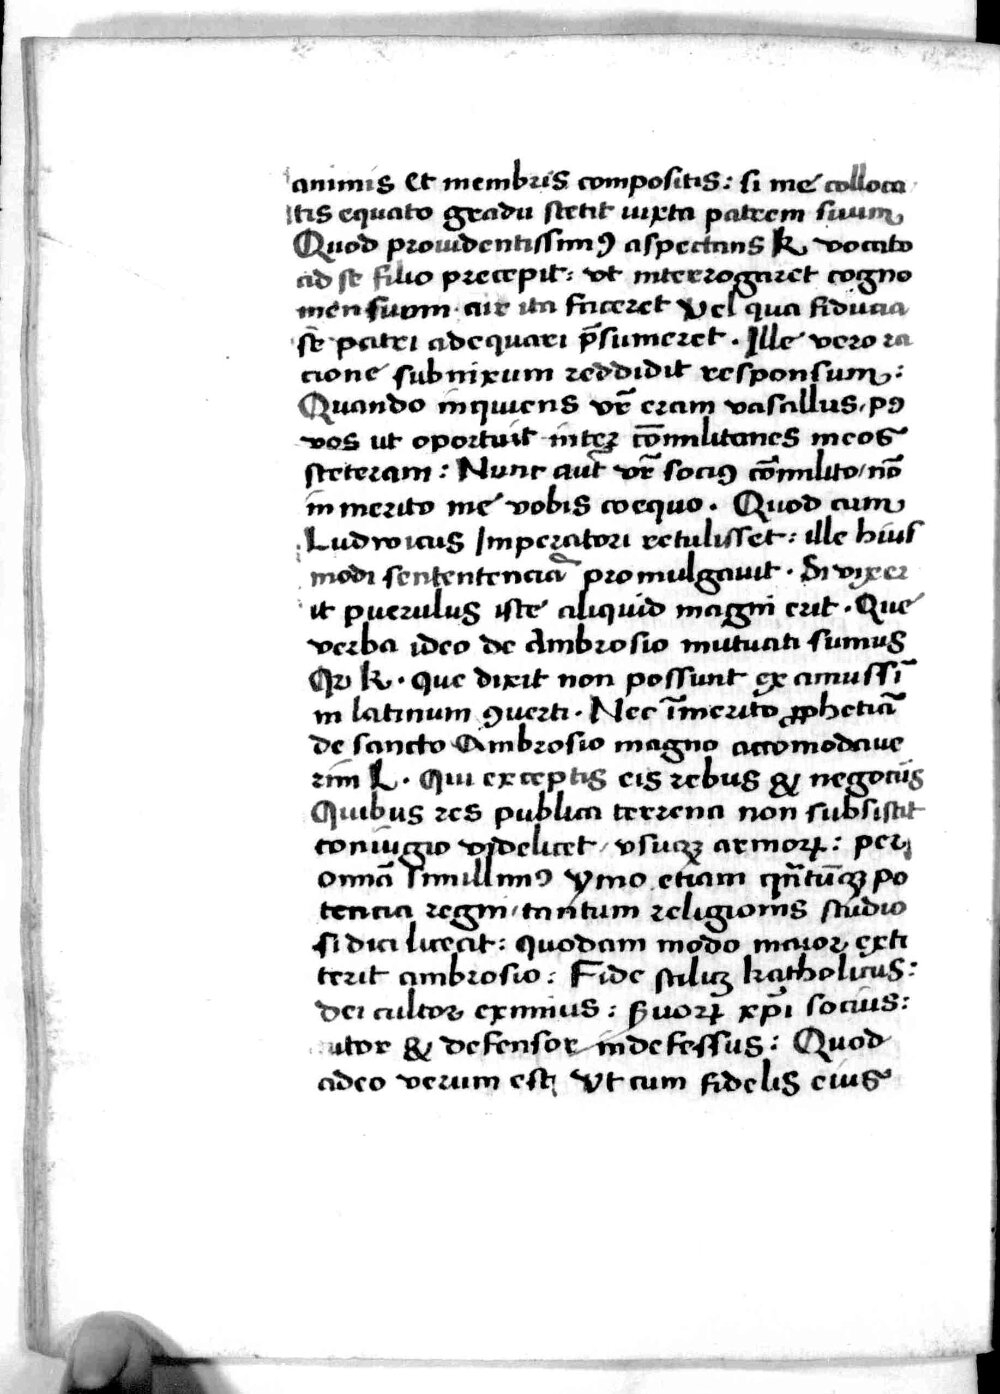 animis et membris compositis: si me colloca
tis equato gradu stetit iuxta patrem suum
Quod prouidentissimꝰ aspectans k vocato
ad se filio precepit: vt interrogaret cogno
men suum. cur ita faceret Vel qua fiducia
se patri adequari p̄sumeret. Ille vero ra
cione subnixum reddidit responsum:
Quando inquiens vr̄ eram vasallus, pꝰ
vos ut oportuit inter com̄ilitones meos
steteram: Nunc aut̄ vr̄ sociꝰ com̄ilito/ nō
in merito me vobis coequo. Quod cum
Ludwicus Imperatori retulisset: ille hius
modi sententencia promulgauit. Si vixer
it puerulus iste aliquid magni erit. Que
verba ideo de Ambrosio mutuati sumus
Qꝛ k. que dixit non possunt ex amussī
in latinum ꝯuerti. Nec īmerito ꝓphetiā
de sancto Ambrosio magno accomodaue
rim L. Qui exceptis eis rebus & negociis
Quibus res publica terrena non subsistit
coniugio videlicet/ vsuqꝫ armoꝝ: per
omnā simillimꝰ ymo etiam qn̄tūcqꝫ po
tencia regni/ tantum religionis studio
si dici liceat: quodam modo maior exti
terit ambrosio: Fide scilicꝫ katholicus:
dei cultor eximius: ẜuoꝝ xp̄i socius:
tutor & defensor indefessus: Quod
adeo verum est, Vt cum fidelis eius